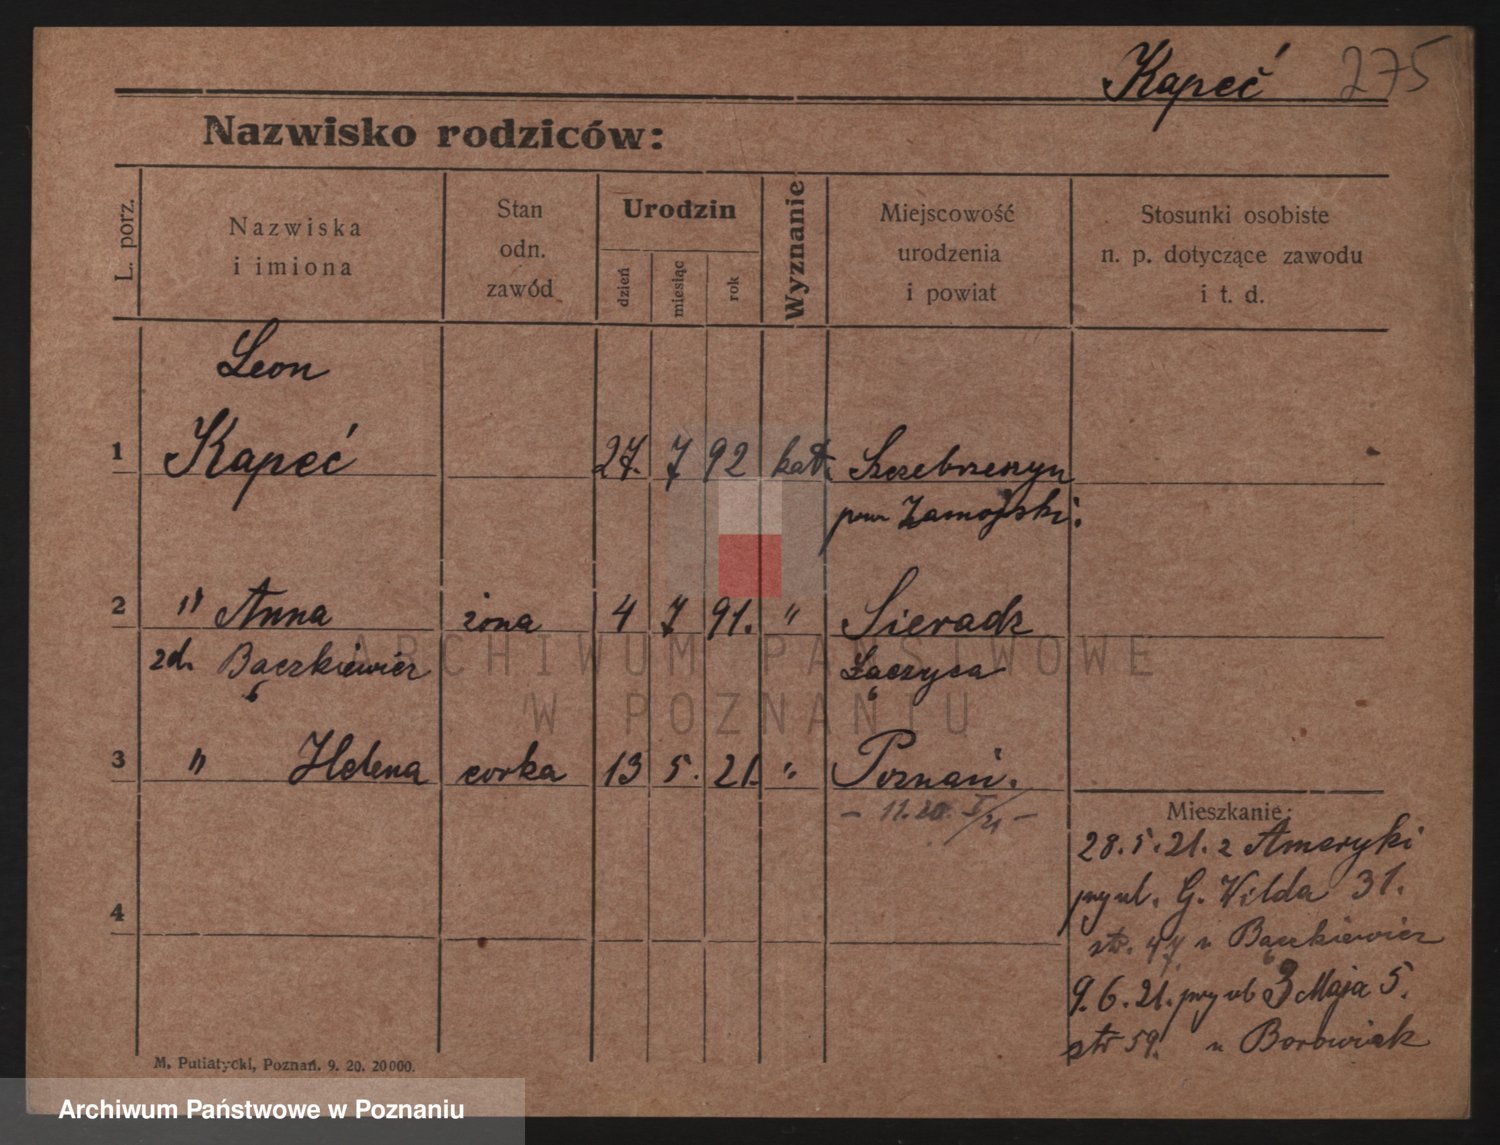 Kapeć 275
Nazwisko rodziców:
L. porz.
Nazwiska
i imiona
Stan
odn.
zawód
Urodzin
dzień
miesiąc
rok
Wyznanie
Miejscowość
urodzenia
i powiat
Stosunki osobiste
n. p. dotyczące zawodu
i t. d.
Leon
1 Kapeć 27. 7 92 kat. Szczebrzeszyn
pow Zamojski.
2 " Anna żona 4 7 91. " Sieradz
zd. Bączkiewicz Łączyca
3 " Helena corka 13 5. 21. " Poznań.
Mieszkanie:
28.5.21. z Ameryki
przy ul. G. Wilda 31.
str. 47. u Bączkiewicz
9.6.21. przy ul 3 Maja 5.
str 59. u Borowiak
4
M. Putiatycki, Poznań. 9. 20. 20000.
ARCHIWUM PAŃSTWOWE
W POZNANIU
Archiwum Państwowe w Poznaniu